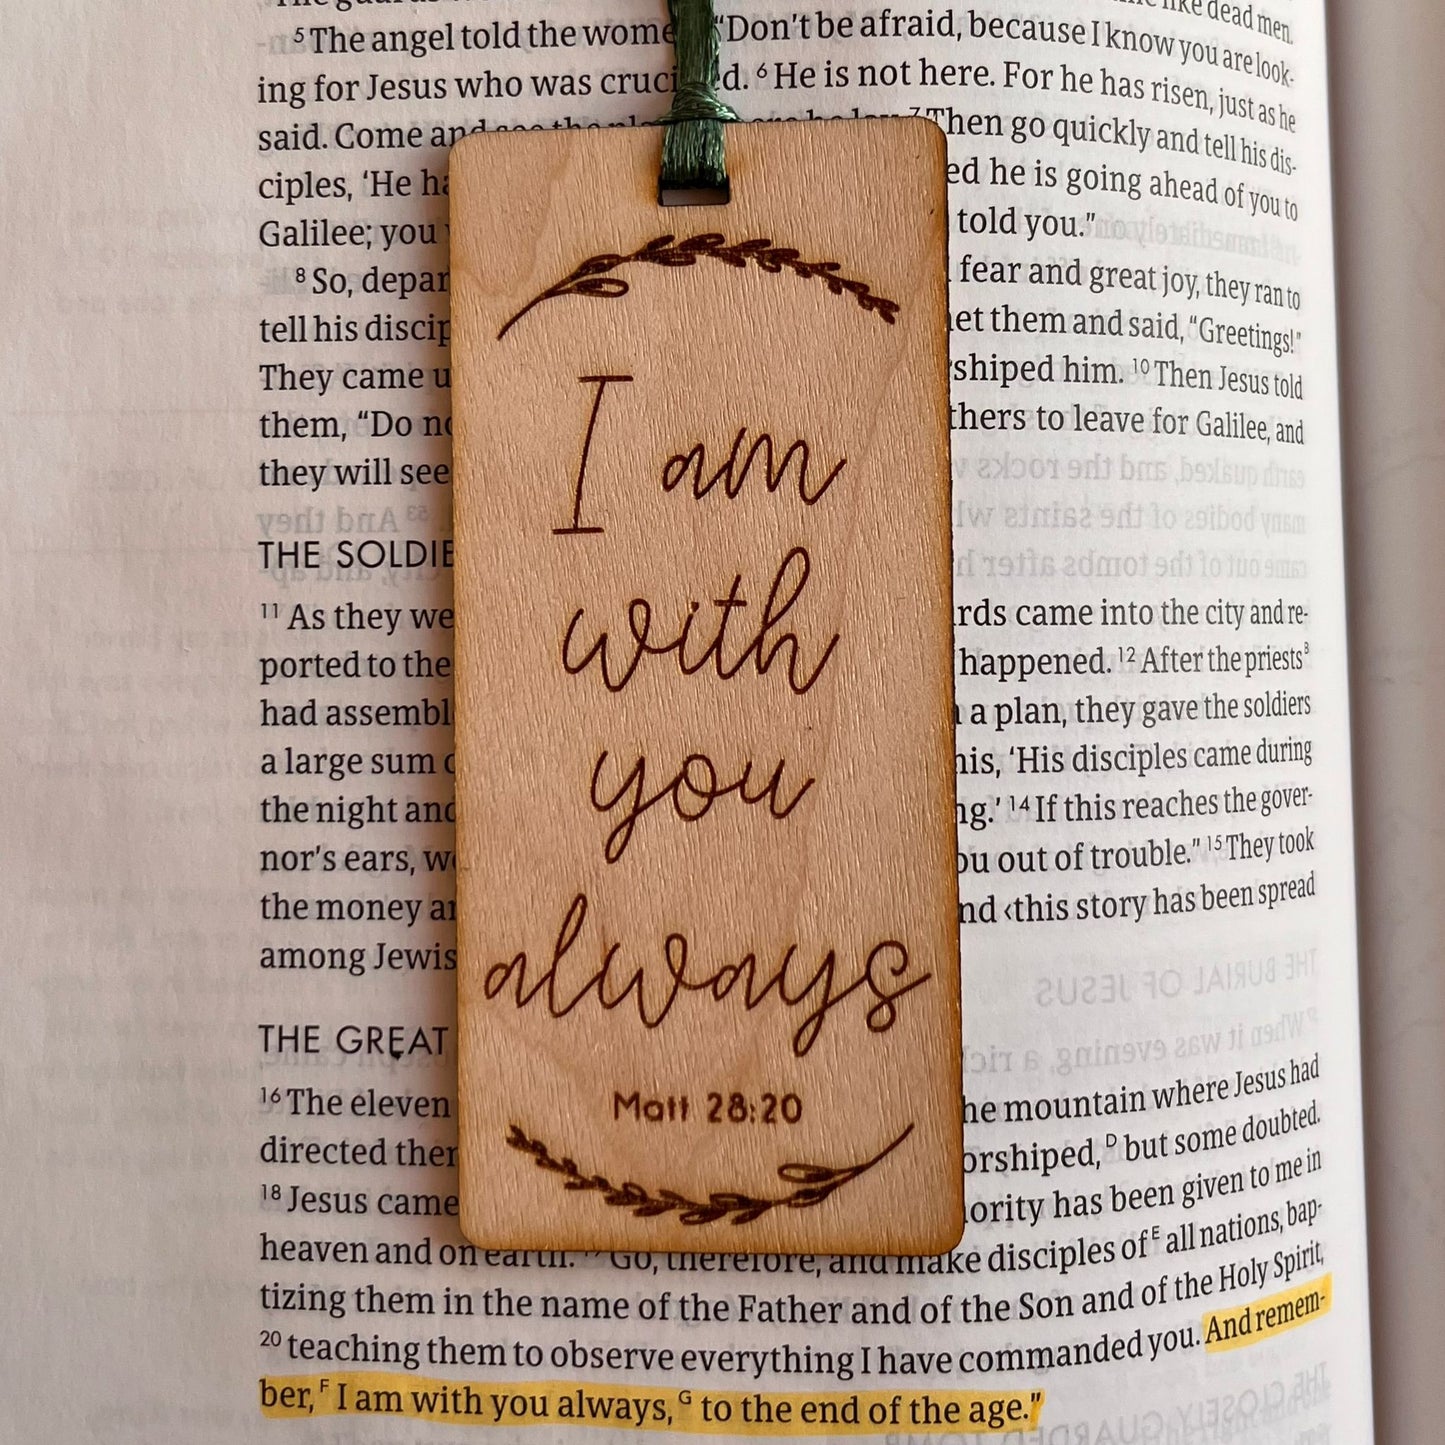 5 The angel told the wome "Don't be afraid, because I know you are look-
ing for Jesus who was cruci d. 6 He is not here. For he has risen, just as he
said. Come and see the pla ere he lay. 7 Then go quickly and tell his dis-
ciples, 'He ha ed he is going ahead of you to
Galilee; you told you."
8 So, depar fear and great joy, they ran to
tell his discip et them and said, "Greetings!"
They came u shiped him. 10 Then Jesus told
them, "Do no thers to leave for Galilee, and
they will see
THE SOLDIE
11 As they we rds came into the city and re-
ported to the happened. 12 After the priests B
had assembl a plan, they gave the soldiers
a large sum his, 'His disciples came during
the night and ng.' 14 If this reaches the gover-
nor's ears, we ou out of trouble." 15 They took
the money an nd ‹this story has been spread
among Jewis
THE GREAT
16 The eleven he mountain where Jesus had
directed ther orshiped, D but some doubted.
18 Jesus came ority has been given to me in
heaven and on earth. 19 Go, therefore, and make disciples of E all nations, bap-
tizing them in the name of the Father and of the Son and of the Holy Spirit,
20 teaching them to observe everything I have commanded you. And remem-
ber, F I am with you always, G to the end of the age."
I am
with
you
always
Matt 28:20